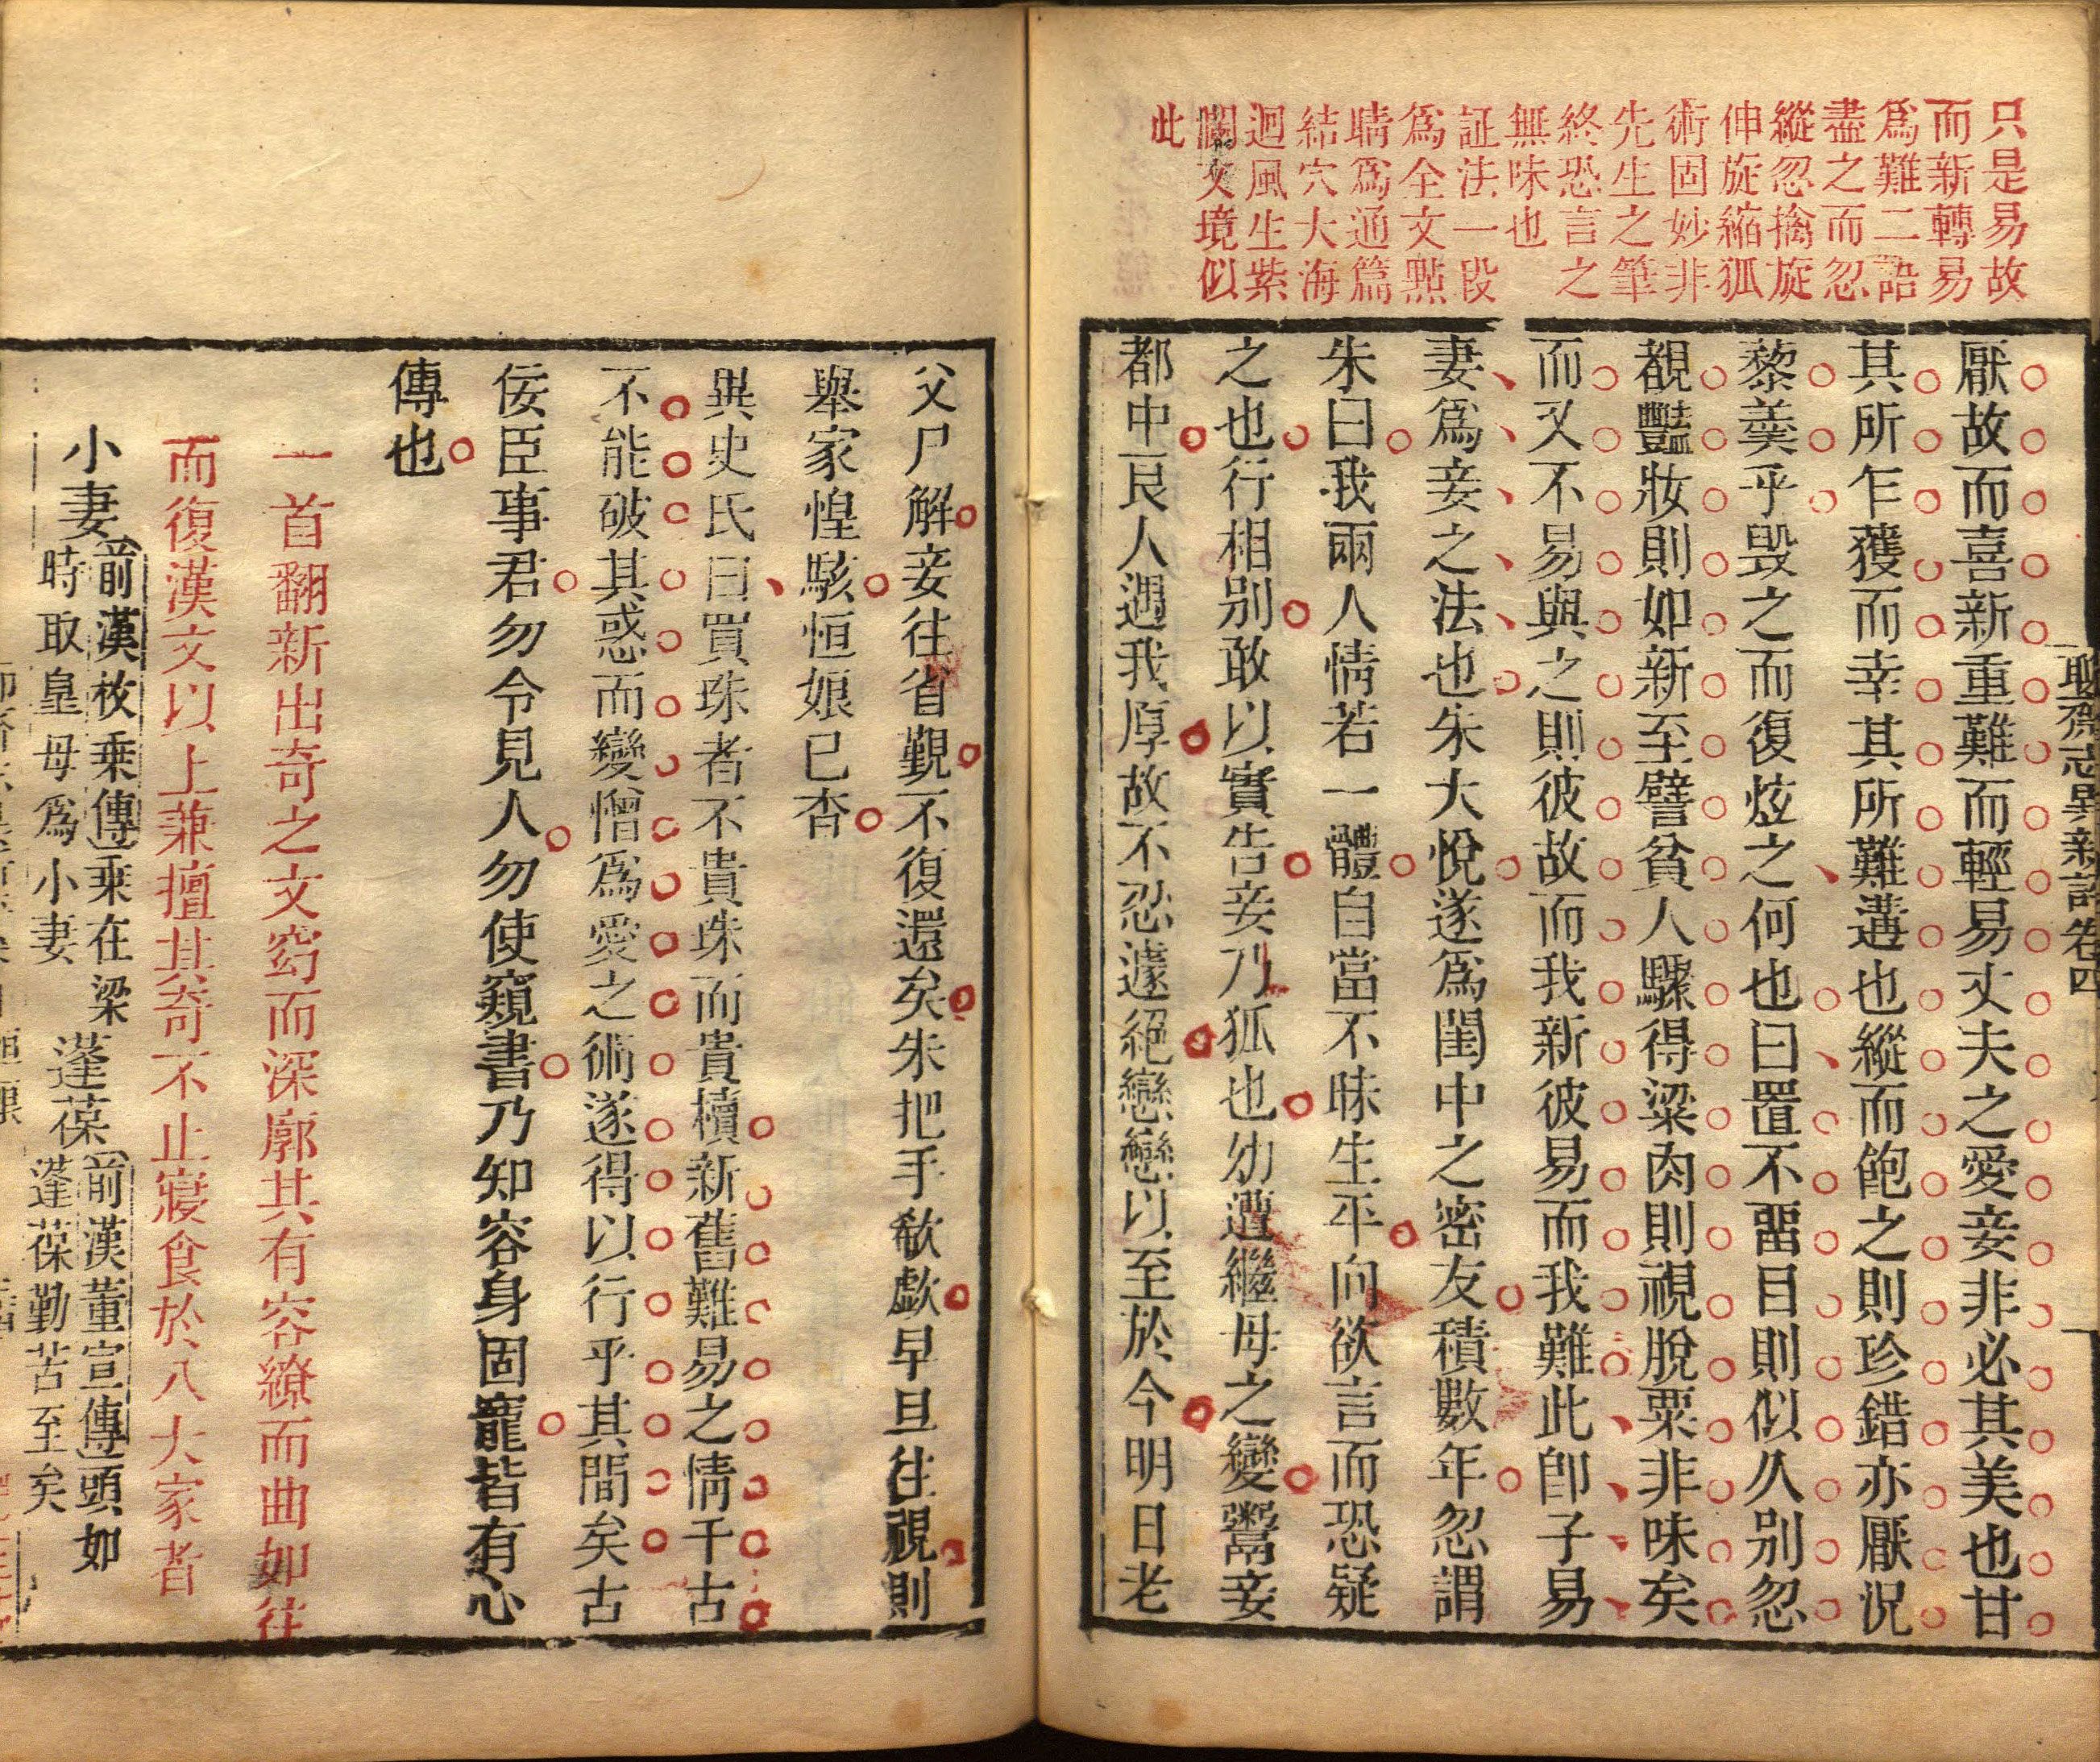 只是易故
而新轉易
爲難二語
盡之而忽
縱忽擒旋
伸旋縮狐
術固妙非
先生之筆
終恐言之
無味也
証法一段
爲全文點
睛爲通篇
結穴大海
迴風生紫
瀾文境似
此
聊齋志異新評卷四
厭故而喜新重難而輕易丈夫之愛妾非必其美也甘
其所乍獲而幸其所難遘也縱而飽之則珍錯亦厭況
藜羹乎毀之而復炫之何也曰置不畱目則似久別忽
覩豔妝則如新至譬貧人驟得粱肉則視脫粟非味矣
而又不易與之則彼故而我新彼易而我難此卽子易
妻爲妾之法也朱大悅遂爲閨中之密友積數年忽謂
朱曰我兩人情若一體自當不昧生平向欲言而恐疑
之也行相別敢以實告妾乃狐也幼遭繼母之變鬻妾
都中良人遇我厚故不忍遽絕戀戀以至於今明日老
父尸解妾往省覲不復還矣朱把手欷歔早旦往視則
舉家惶駭恒娘已杳
異史氏曰買珠者不貴珠而貴櫝新舊難易之情千古
不能破其惑而變憎爲愛之術遂得以行乎其間矣古
佞臣事君勿令見人勿使窺書乃知容身固寵皆有心
傳也
一首翻新出奇之文窈而深廓其有容繚而曲如往
而復漢文以上兼擅其奇不止寢食於八大家者
小妻前漢枚乘傳乘在梁
時取皇母爲小妻
蓬葆前漢董宣傳頭如
蓬葆勤苦至矣